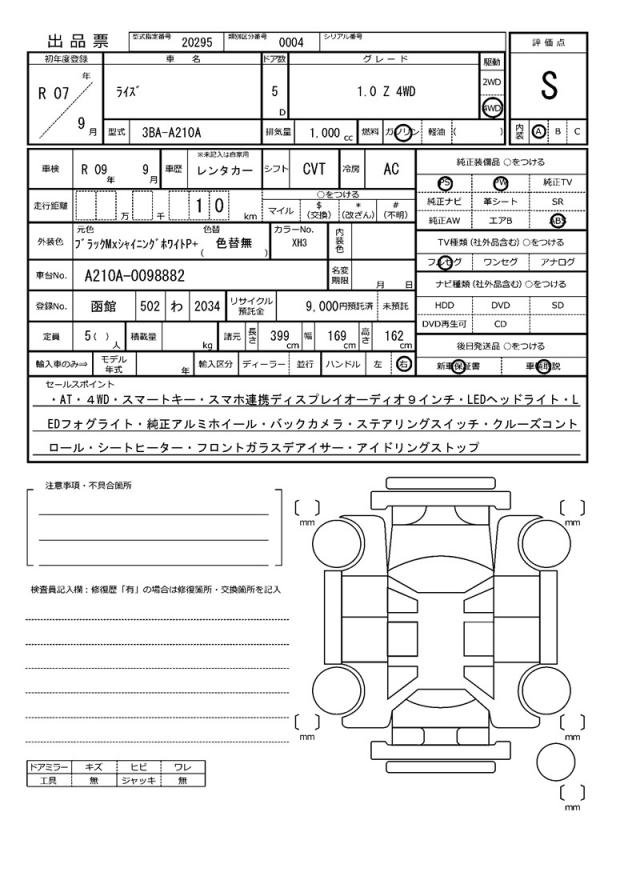 出品票 型式指定番号 20295 類別区分番号 0004 シリアル番号
評価点
初年度登録 車名 ドア数 グレード 駆動
R 07 年 9 月
ライズ 5 D 1.0 Z 4WD
2WD
4WD
S
型式 3BA-A210A 排気量 1.000 cc 燃料 ガソリン 軽油 ( )
内装 A B C
車検 R 09 年 9 月 車歴 ※未記入は自家用 レンタカー シフト CVT 冷房 AC
走行距離 万 千 1 0 km
○をつける
マイル $ (交換) * (改ざん) # (不明)
外装色 元色 色替
ブラックMxシャイニングホワイトP+ ( 色替無 )
カラーNo. XH3 内装色
車台No. A210A-0098882 名変期限 月 日
登録No. 函館 502 わ 2034 リサイクル預託金 9,000円預託済 未預託
定員 5( ) 人 積載量 kg 諸元 長さ 399 cm 幅 169 cm 高さ 162 cm
輸入車のみ⇒ モデル年式 年 輸入区分 ディーラー 並行 ハンドル 左 右
純正装備品 ○をつける
PS PW 純正TV
純正ナビ 革シート SR
純正AW エアB ABS
TV種類 (社外品含む) ○をつける
フルセグ ワンセグ アナログ
ナビ種類 (社外品含む) ○をつける
HDD DVD SD
DVD再生可 CD
後日発送品 ○をつける
新車保証書 車輌取説
セールスポイント
・AT・4WD・スマートキー・スマホ連携ディスプレイオーディオ9インチ・LEDヘッドライト・L
EDフォグライト・純正アルミホイール・バックカメラ・ステアリングスイッチ・クルーズコント
ロール・シートヒーター・フロントガラスデアイサー・アイドリングストップ
注意事項・不具合箇所
検査員記入欄：修復歴「有」の場合は修復箇所・交換箇所を記入
mm
mm
mm
mm
mm
ドアミラー キズ ヒビ ワレ
工具 無 ジャッキ 無